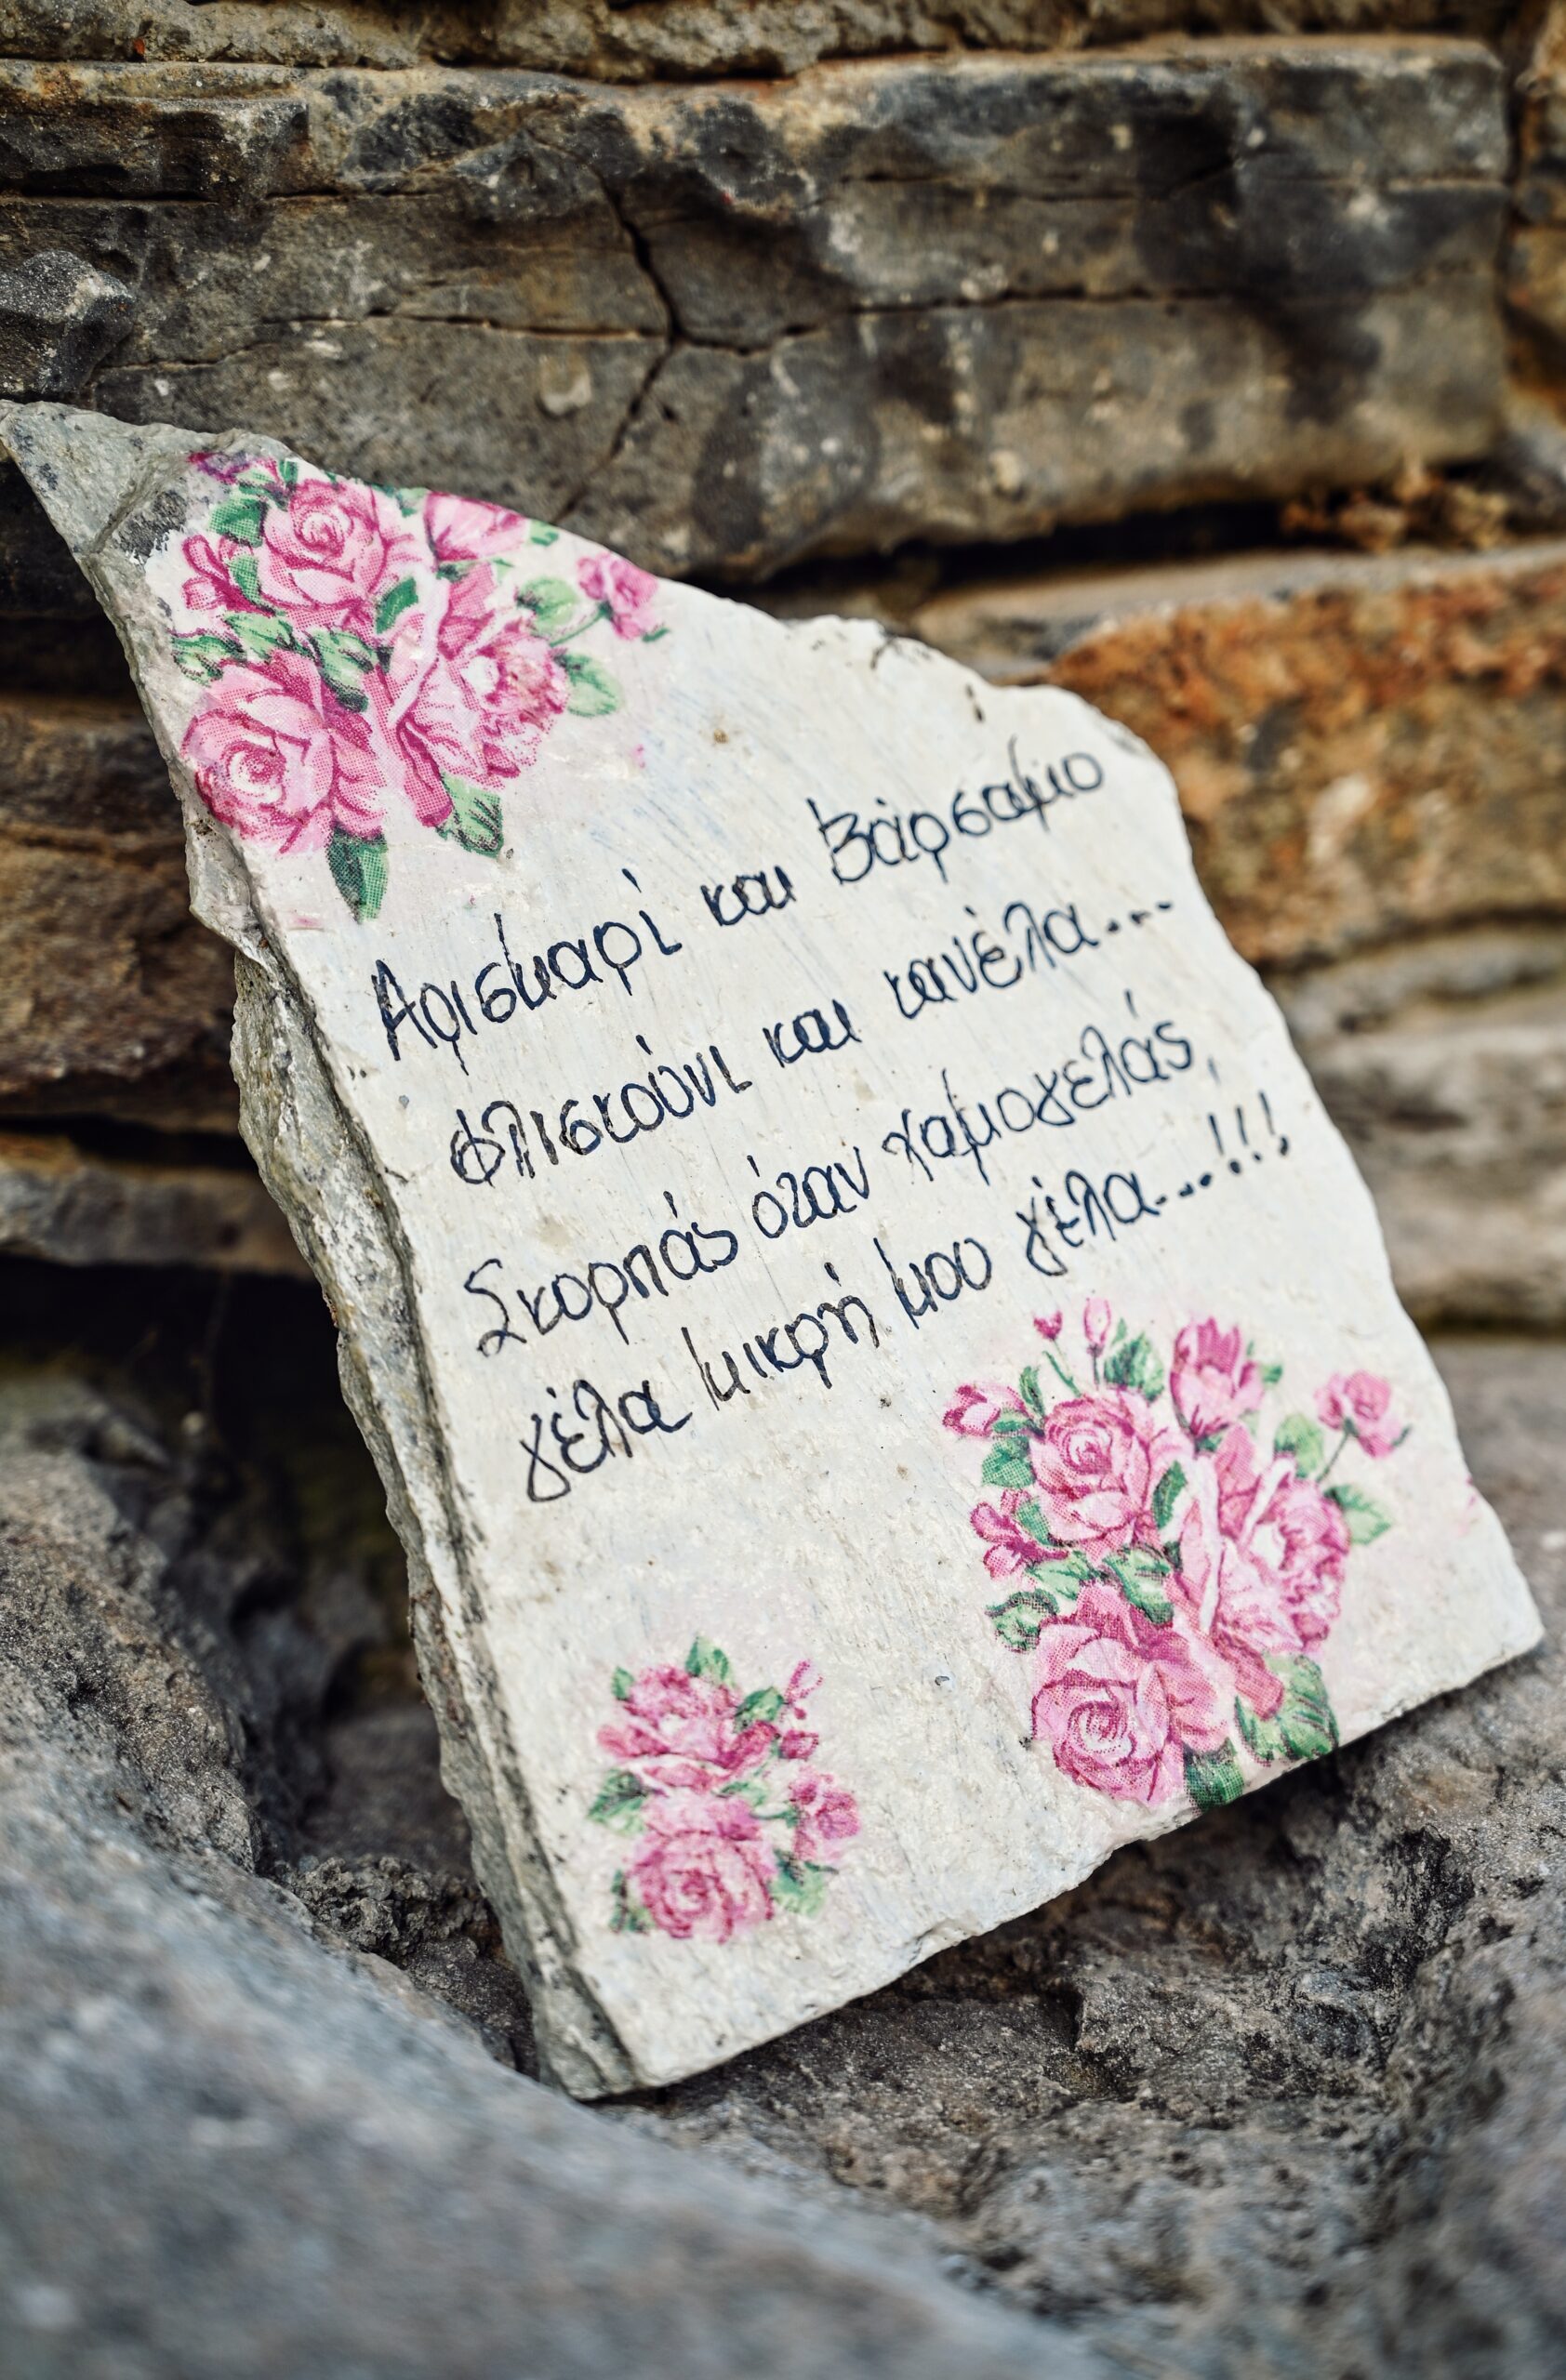 Αρισμαρί και Βάρσαμο
φλισκούνι και κανέλα...
Σκορπάς όταν χαμογελάς,
γέλα μικρή μου γέλα...!!!